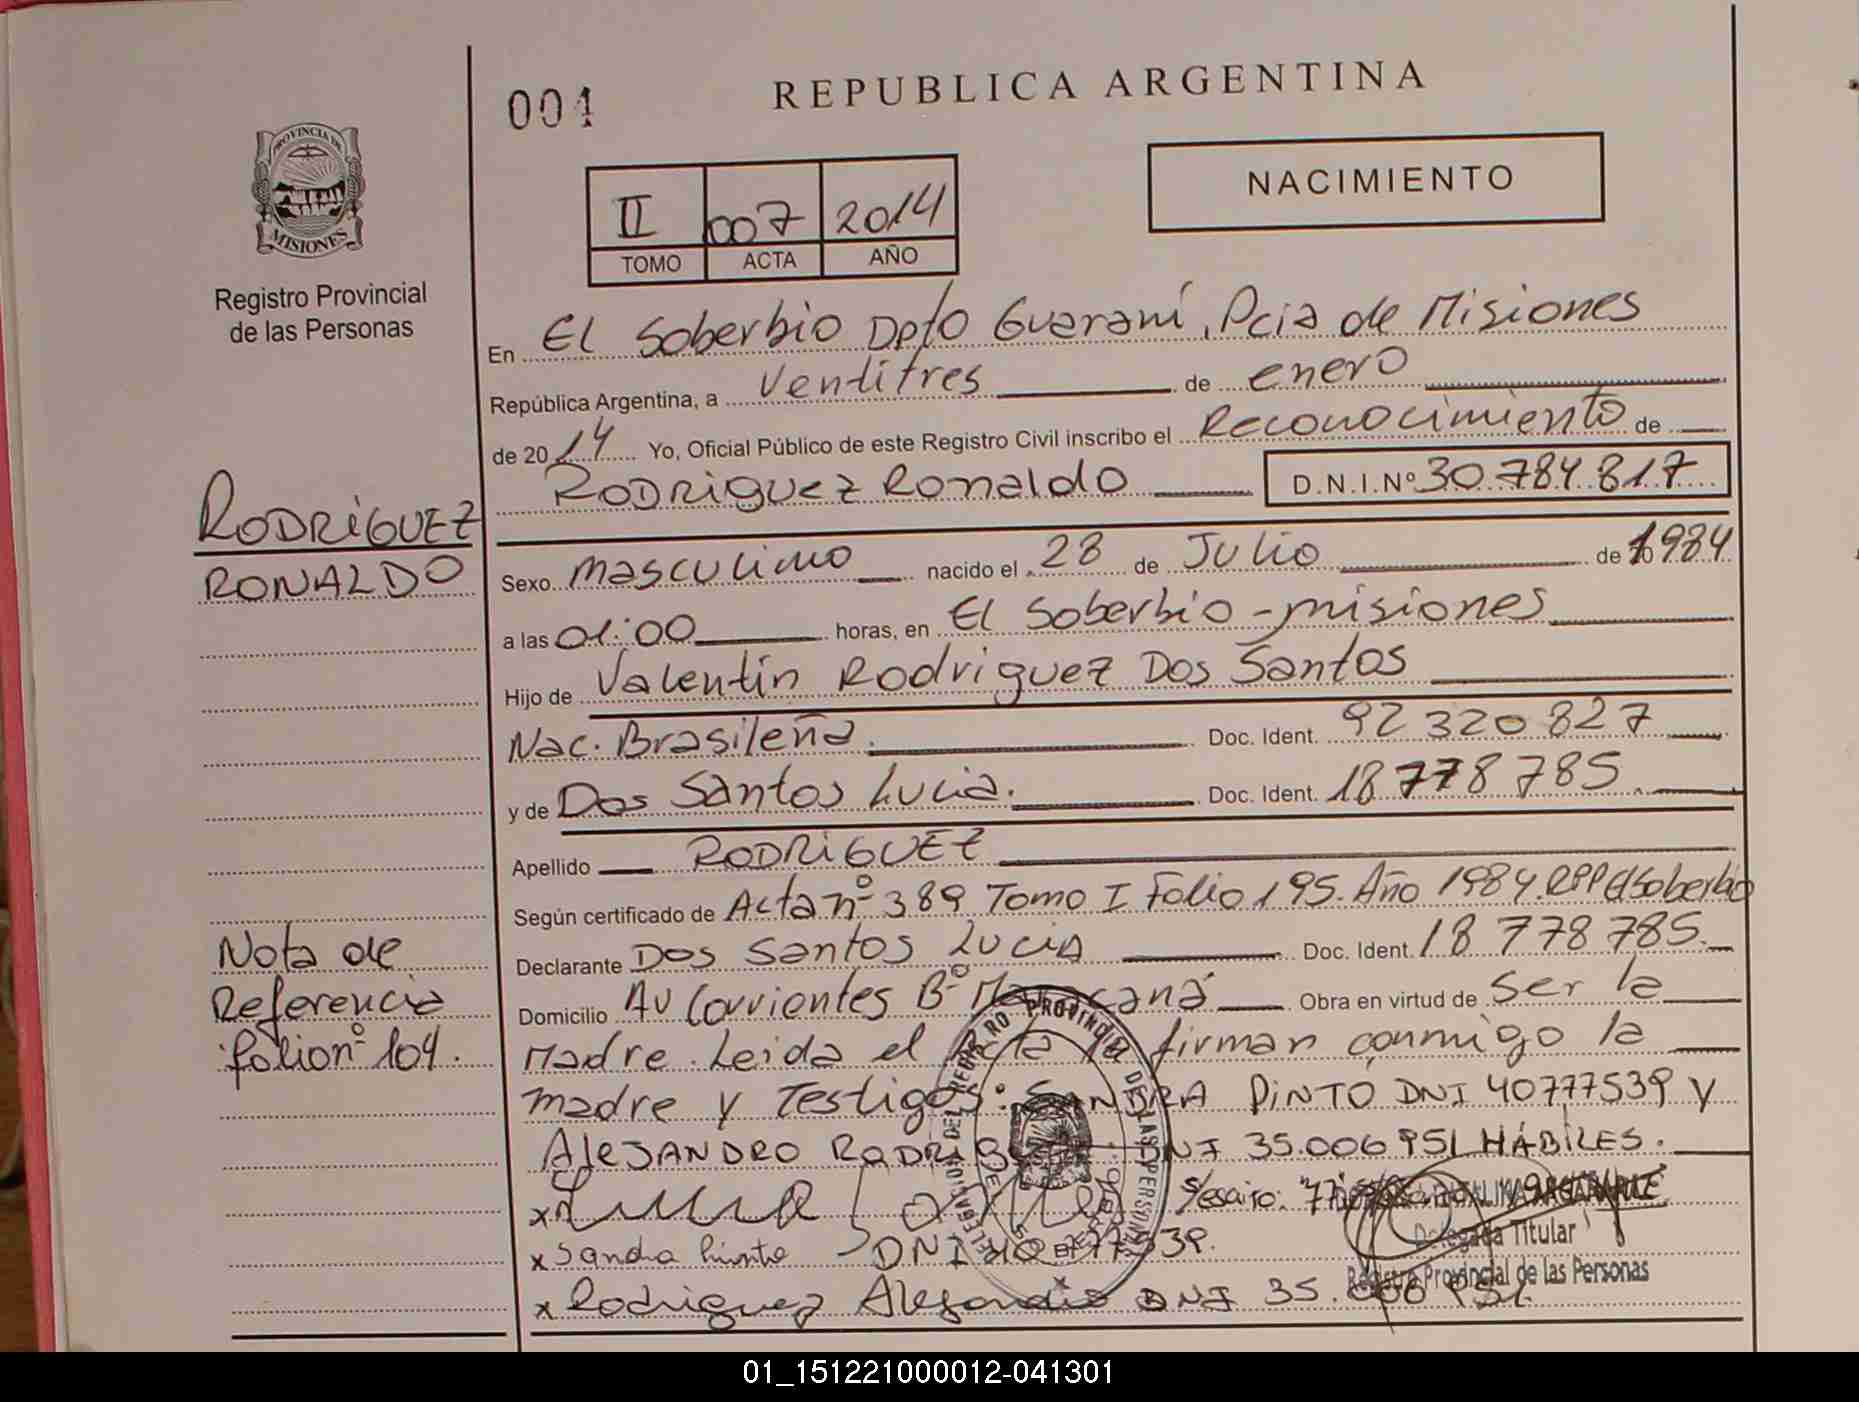 001
REPUBLICA ARGENTINA
PROVINCIA DE
MISIONES
Registro Provincial
de las Personas
II 007 2014
TOMO ACTA AÑO
NACIMIENTO
En El Soberbio Dpto Guaraní, Pcia de Misiones
República Argentina, a Ventitres de enero
de 2014 Yo, Oficial Público de este Registro Civil inscribo el Reconocimiento de
Rodriguez Ronaldo D.N.I.Nº 30.784.817
RODRíGUEZ
RONALDO
Sexo masculino nacido el 28 de Julio de 1984
a las 01:00 horas, en El Soberbio - misiones
Hijo de Valentín Rodriguez Dos Santos
Nac. Brasileña. Doc. Ident. 92 320 827
y de Dos Santos Lucia. Doc. Ident. 18 778 785
Apellido RODRiGUEZ
Según certificado de Acta nº 389 Tomo I Folio 195. Año 1984. RPP El Soberbio
Declarante Dos Santos Lucia Doc. Ident. 18 778 785.
Domicilio Av Corrientes Bº Maracaná Obra en virtud de Ser la
Madre. Leida el Acta firman conmigo la
madre y Testigos: SANDRA PiNTO DNI 40777539 y
AleJANDRO RODRIGUEZ DNI 35.006 951 HÁBILES.
Nota de
Referencia
folio nº 104.
x
x Sandra Pinto DNI 40777539.
x Rodriguez Alejandro DNI 35.006 951
REGISTRO PROVINCIAL DE LAS PERSONAS
Delegada Titular
Registro Provincial de las Personas
01_151221000012-041301